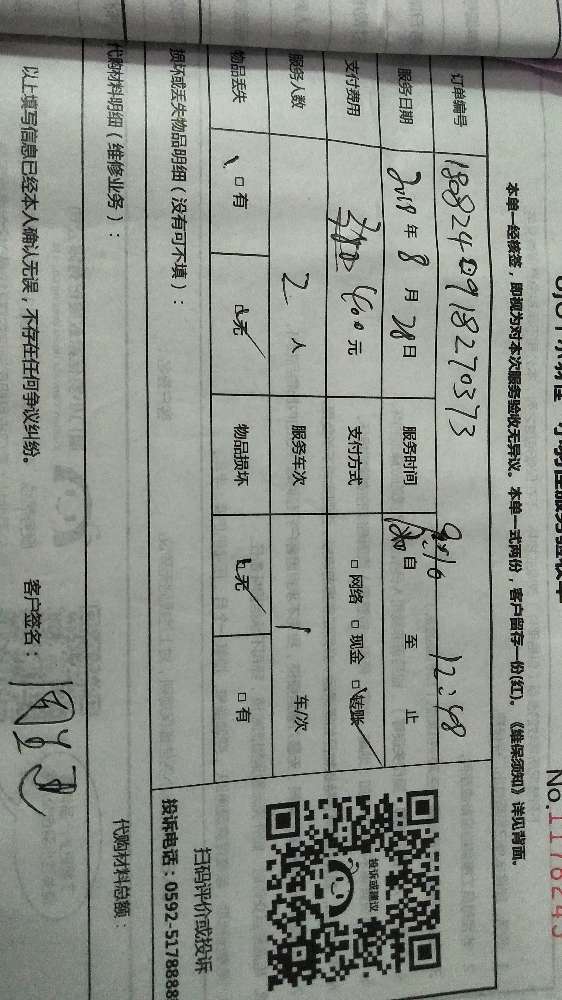 No.1178245
本单一经核签，即视为对本次服务验收无异议。本单一式两份，客户留存一份(红)。《维保须知》详见背面。
订单编号 180824 0918270373
服务日期 2018 年 8 月 28 日 服务时间 自 至 止 12:48
支付费用 400 元 支付方式 □ 网络 □ 现金 □ 转账
服务人数 2 人 服务车次 1 车/次
物品丢失 □ 有 □ 无 物品损坏 □ 无 □ 有
损坏或丢失物品明细（没有可不填）：
代购材料明细（维修业务）： 代购材料总额：
以上填写信息已经本人确认无误，不存在任何争议纠纷。 客户签名：
投诉或建议
扫码评价或投诉
投诉电话：0592-5178888